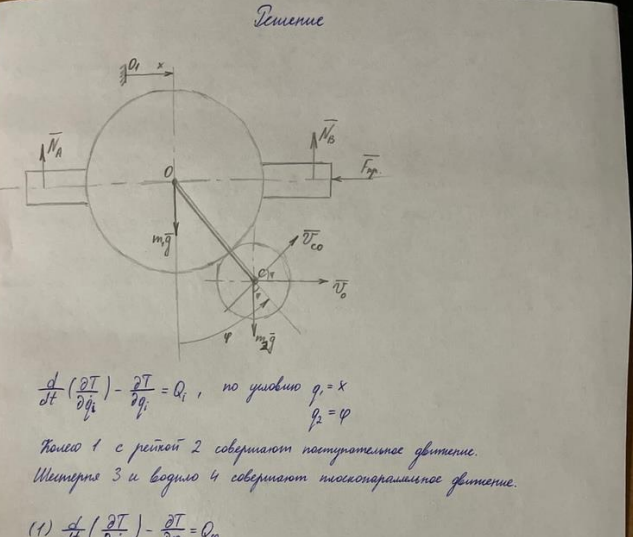 Решение
O₁ x
N̅_A
N̅_B
F̅пр.
O
m₁g̅
V̅_CO
C
V̅₀
φ
m₃g̅
d/dt (∂T/∂q̇ᵢ) − ∂T/∂qᵢ = Qᵢ , по условию q₁ = x
q₂ = φ
Колесо 1 с рейкой 2 совершают поступательное движение.
Шестерня 3 и водило 4 совершают плоскопараллельное движение.
(1) d/dt (∂T/